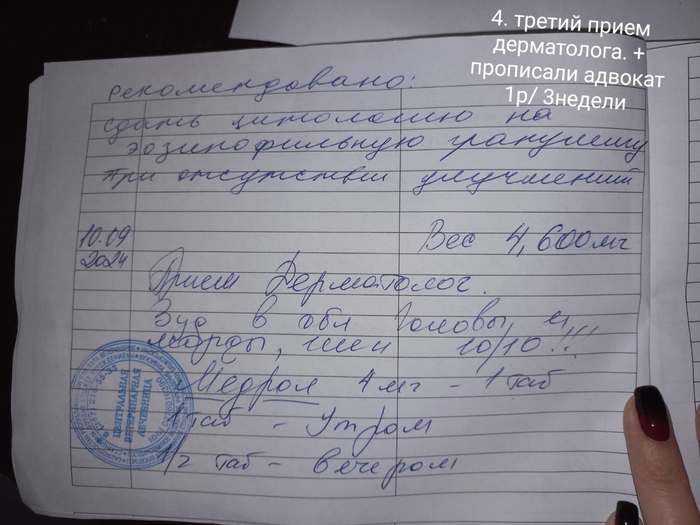 4. третий прием
дерматолога. +
прописали адвокат
1р/ 3недели
рекомендовано:
сдать цитологию на
эозинофильную гранулему
при отсутствии улучшений
10.09
2024
Вес 4,600мг
Прием Дерматолог.
Зуд в обл Головы и
морды, шеи 10/10!!!
Медрол 4мг - 1 таб
1 таб - Утром
1/2 таб - вечером
ЦЕНТРАЛЬНАЯ
ВЕТЕРИНАРНАЯ
ЛЕЧЕБНИЦА